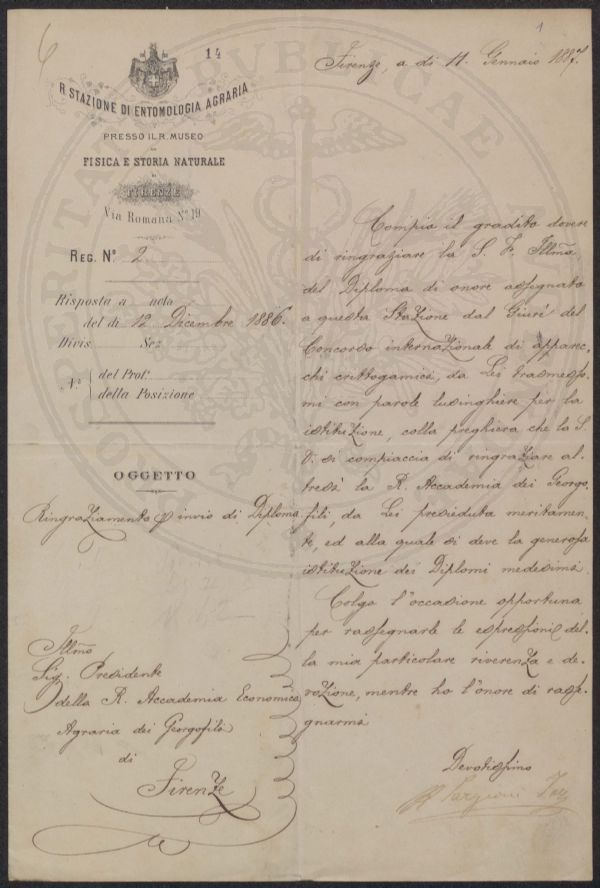 14
1
R. STAZIONE DI ENTOMOLOGIA AGRARIA
PRESSO IL R. MUSEO
DI
FISICA E STORIA NATURALE
DI
FIRENZE
Via Romana N.º 19
REG. N.º 2
Risposta a nota
del dì 12 Dicembre 1886.
Divis. Sez
N.º del Prot.
della Posizione
OGGETTO
Ringraziamento p invio di Diploma
Illmo
Sig. Presidente
della R. Accademia Economico
Agraria dei Georgofili
di
Firenze
Firenze, a dì 11. Gennaio 1887.
Compio il gradito dovere
di ringraziare la S. V. Illma
del Diploma di onore assegnato
a questa Stazione dal Giurì del
Concorso internazionale di apparec-
chi crittogamici, da Lei trasmesso-
mi con parole lusinghiere per la
istituzione, colla preghiera che la S.
V. si compiaccia di ringraziare al-
tresì la R. Accademia dei Georgo-
fili, da Lei presieduta meritamen-
te, ed alla quale si deve la generosa
istituzione dei Diplomi medesimi.
Colgo l'occasione opportuna
per rassegnarle le espressioni del-
la mia particolare riverenza e de-
vozione, mentre ho l'onore di rasse-
gnarmi
Devotissimo
Targioni Tozz